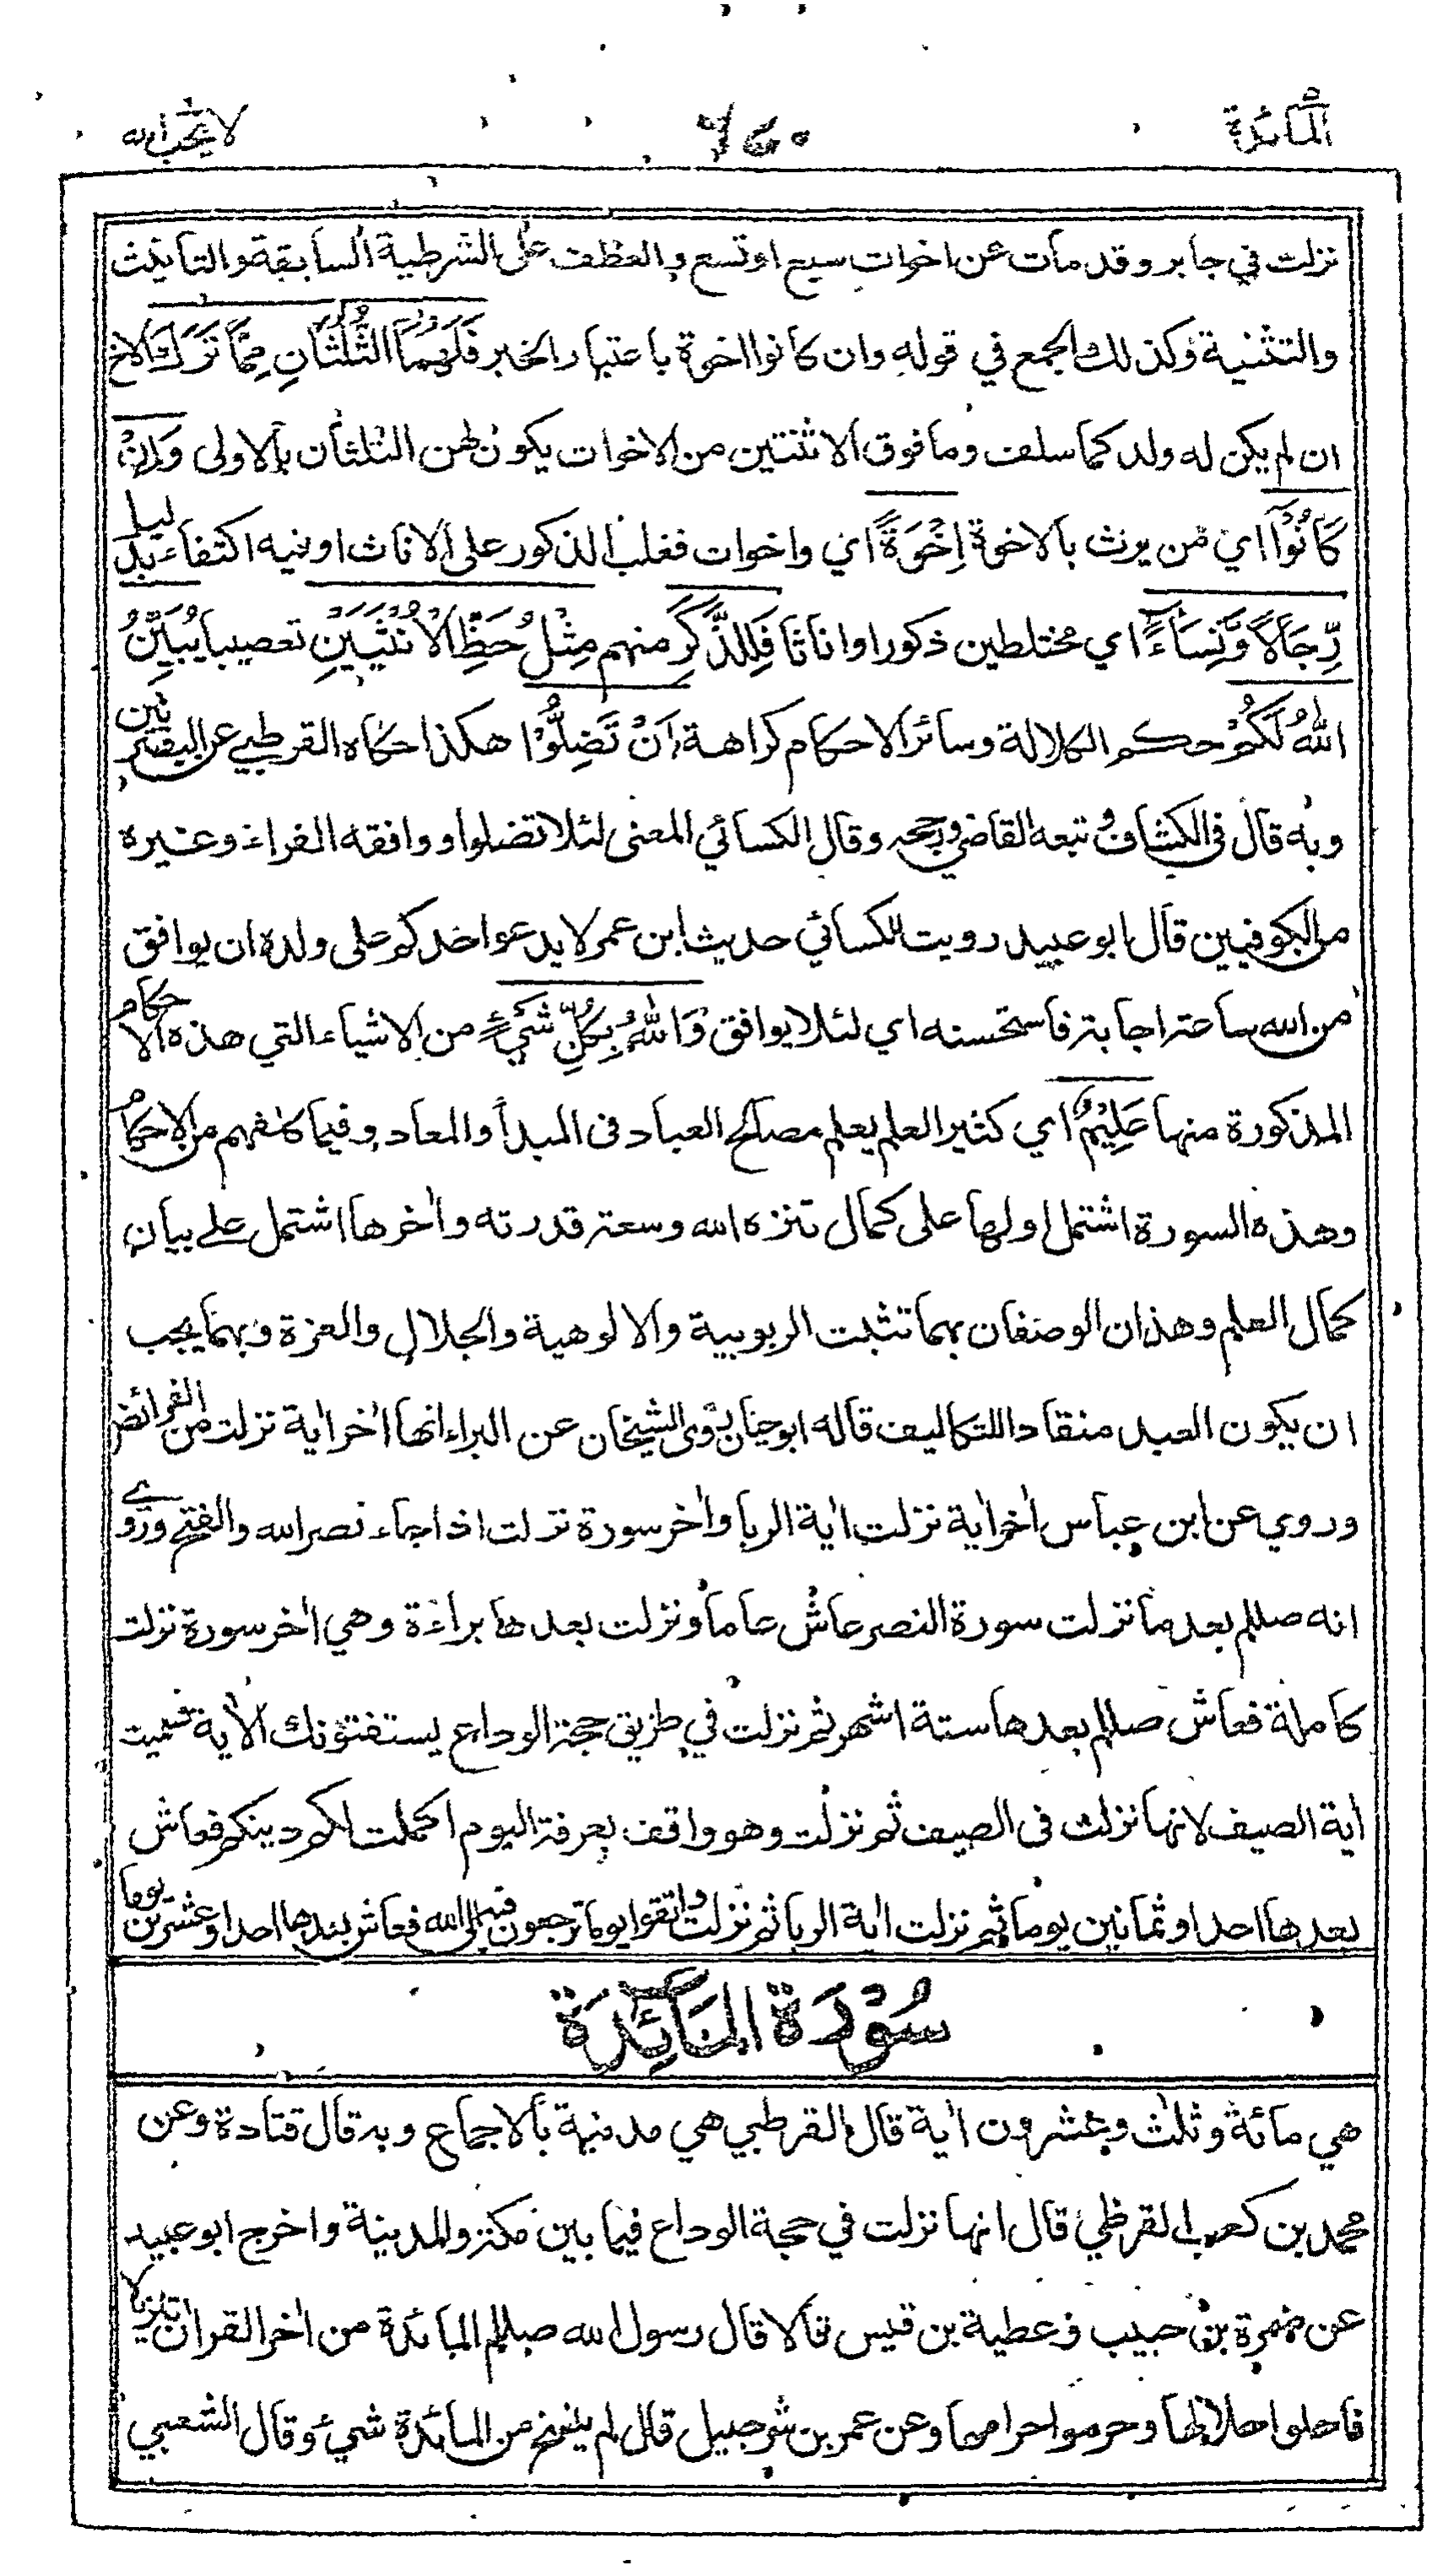 المائدة ٦٢٠ لا يحب الله
نزلت في جابر وقد مات عن اخوات سبع او تسع والعطف على الشرطية السابقة والتانيث
والتثنية وكذلك الجمع في قوله وان كانوا اخوة باعتبار الخبر فَلَهُمَا الثُّلُثَانِ مِمَّا تَرَكَ الاخ
ان لم يكن له ولد كما سلف وما فوق الاثنتين من الاخوات يكون لهن الثلثان بالاولى وَاِنْ
كَانُوْآ اي من يرث بالاخوة اِخْوَةً اي واخوات فغلب الذكور على الاناث او فيه اكتفاء بدليل
رِّجَالًا وَّنِسَآءً اي مختلطين ذكورا واناثا فَلِلذَّكَرِ منهم مِثْلُ حَظِّ الْاُنْثَيَيْنِ تعصيبا يُبَيِّنُ
اللهُ لَكُمْ حكم الكلالة وسائر الاحكام كراهة اَنْ تَضِلُّوْا هكذا حكاه القرطبي عن البصريين
وبه قال فى الكشاف وتبعه القاضي ورجحه وقال الكسائي المعنى لئلا تضلوا ووافقه الفراء وغيره
من الكوفيين قال ابو عبيد رويت للكسائي حديث ابن عمر لا يدعوا احدكم على ولده ان يوافق
من الله ساعة اجابة فاستحسنه اي لئلا يوافق وَاللهُ بِكُلِّ شَيْءٍ من الاشياء التي هذه الاحكام
المذكورة منها عَلِيْمٌ اي كثير العلم يعلم مصالح العباد فى المبدأ والمعاد وفيما كلفهم من الاحكام
وهذه السورة اشتمل اولها على كمال تنزه الله وسعة قدرته واخرها اشتمل على بيان
كمال العلم وهذان الوصفان بهما تثبت الربوبية والالوهية والجلال والعزة وبهما يجب
ان يكون العبد منقادا للتكاليف قاله ابو حيان روى الشيخان عن البراء انها اخر اية نزلت من الفرائض
وروي عن ابن عباس اخر اية نزلت اية الربا واخر سورة نزلت اذا جاء نصر الله والفتح وروي
انه صللم بعد ما نزلت سورة النصر عاش عاما ونزلت بعدها براءة وهي اخر سورة نزلت
كاملة فعاش صللم بعدها ستة اشهر ثم نزلت في طريق حجة الوداع يستفتونك الاية فسميت
اية الصيف لانها نزلت فى الصيف ثم نزلت وهو واقف بعرفة اليوم اكملت لكم دينكم فعاش
بعدها احدا وثمانين يوما ثم نزلت اية الربا ثم نزلت واتقوا يوما ترجعون فيه الى الله فعاش بعدها احدا وعشرين يوما
سُوْرَة المَآئِدَة
هي مائة وثلث وعشرون اية قال القرطبي هي مدنية بالاجماع وبه قال قتادة وعن
محمد بن كعب القرظي قال انها نزلت في حجة الوداع فيما بين مكة والمدينة واخرج ابو عبيد
عن ضمرة بن حبيب وعطية بن قيس قالا قال رسول الله صللم المائدة من اخر القران تنزيلا
فاحلوا حلالها وحرموا حرامها وعن عمر بن شرحبيل قال لم ينسخ من المائدة شيء وقال الشعبي